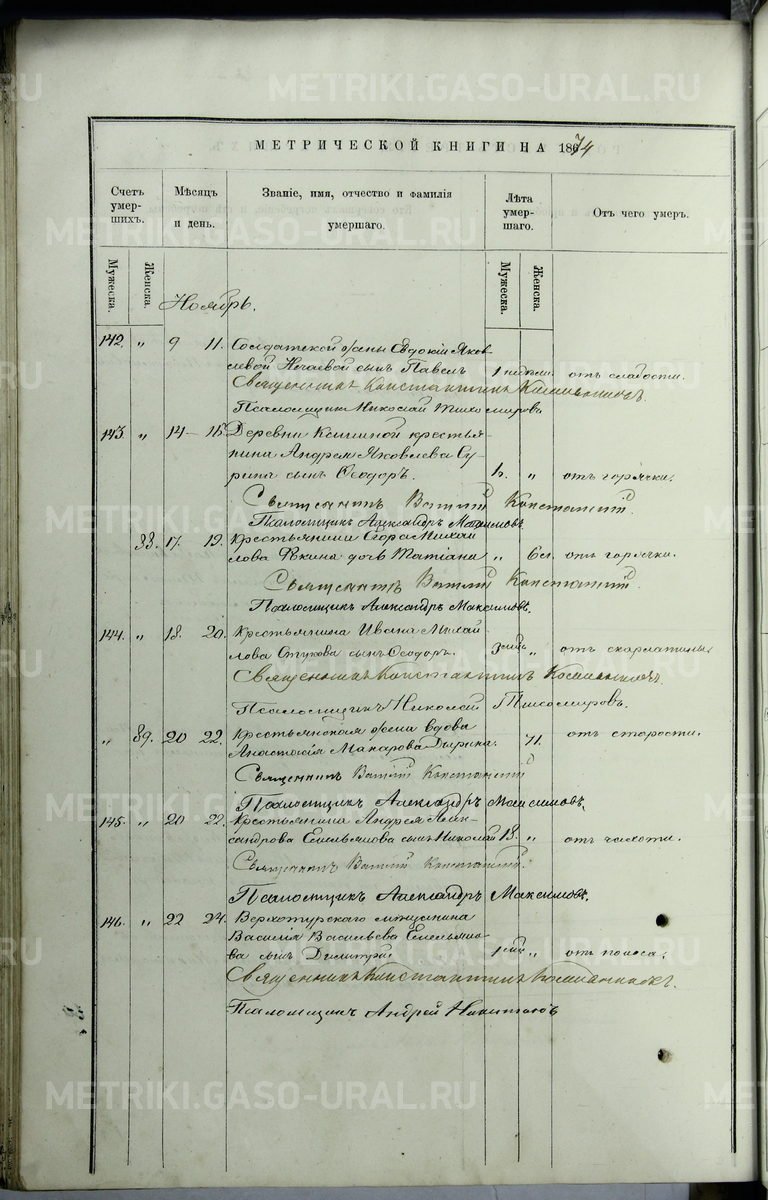 METRIKI.GASO-URAL.RU
МЕТРИЧЕСКОЙ КНИГИ НА 1874
Счетъ умершихъ.
Мѣсяцъ и день.
Званіе, имя, отчество и фамилія умершаго.
Лѣта умершаго.
Отъ чего умеръ.
Мужеска.
Женска.
Мужеска.
Женска.
Ноябрь.
142. „ 9 11. Солдатской жены Евдокіи Яков
левой сынъ Павелъ 1 недѣли. отъ слабости.
Священникъ Константинъ
Псаломщикъ Николай Тихомировъ
143. „ 14 16. Деревни крестья-
нина Андрея Яковлева Су-
рина сынъ Ѳеодоръ. „ отъ горячки.
Священникъ Константинъ
Псаломщикъ Александръ Максимовъ
17. 19. Крестьянина Егора Михай
лова дочь Татіана „ отъ горячки.
Священникъ Константинъ
Псаломщикъ Александръ Максимовъ.
144. „ 18. 20. Крестьянина Ивана Михай-
лова сынъ Ѳеодоръ. „ отъ скарлатины.
Священникъ Константинъ
Псаломщикъ Николай Тихомировъ.
„ 89. 20 22. Крестьянская жена вдова
Анастасія Макарова 71. отъ старости.
Священникъ Константинъ
Псаломщикъ Александръ Максимовъ.
145. „ 20 22. Крестьянина Андрея Алек-
сандрова Емельянова сынъ Николай 18. „ отъ чахотки.
Священникъ Константинъ.
Псаломщикъ Александръ Максимовъ.
146. „ 22 24. Верхотурского мѣщанина
Василія Васильева Емельяно-
ва сынъ Димитрій „ отъ поноса.
Священникъ Константинъ
Псаломщикъ Андрей Никитинъ
METRIKI.GASO-URAL.RU